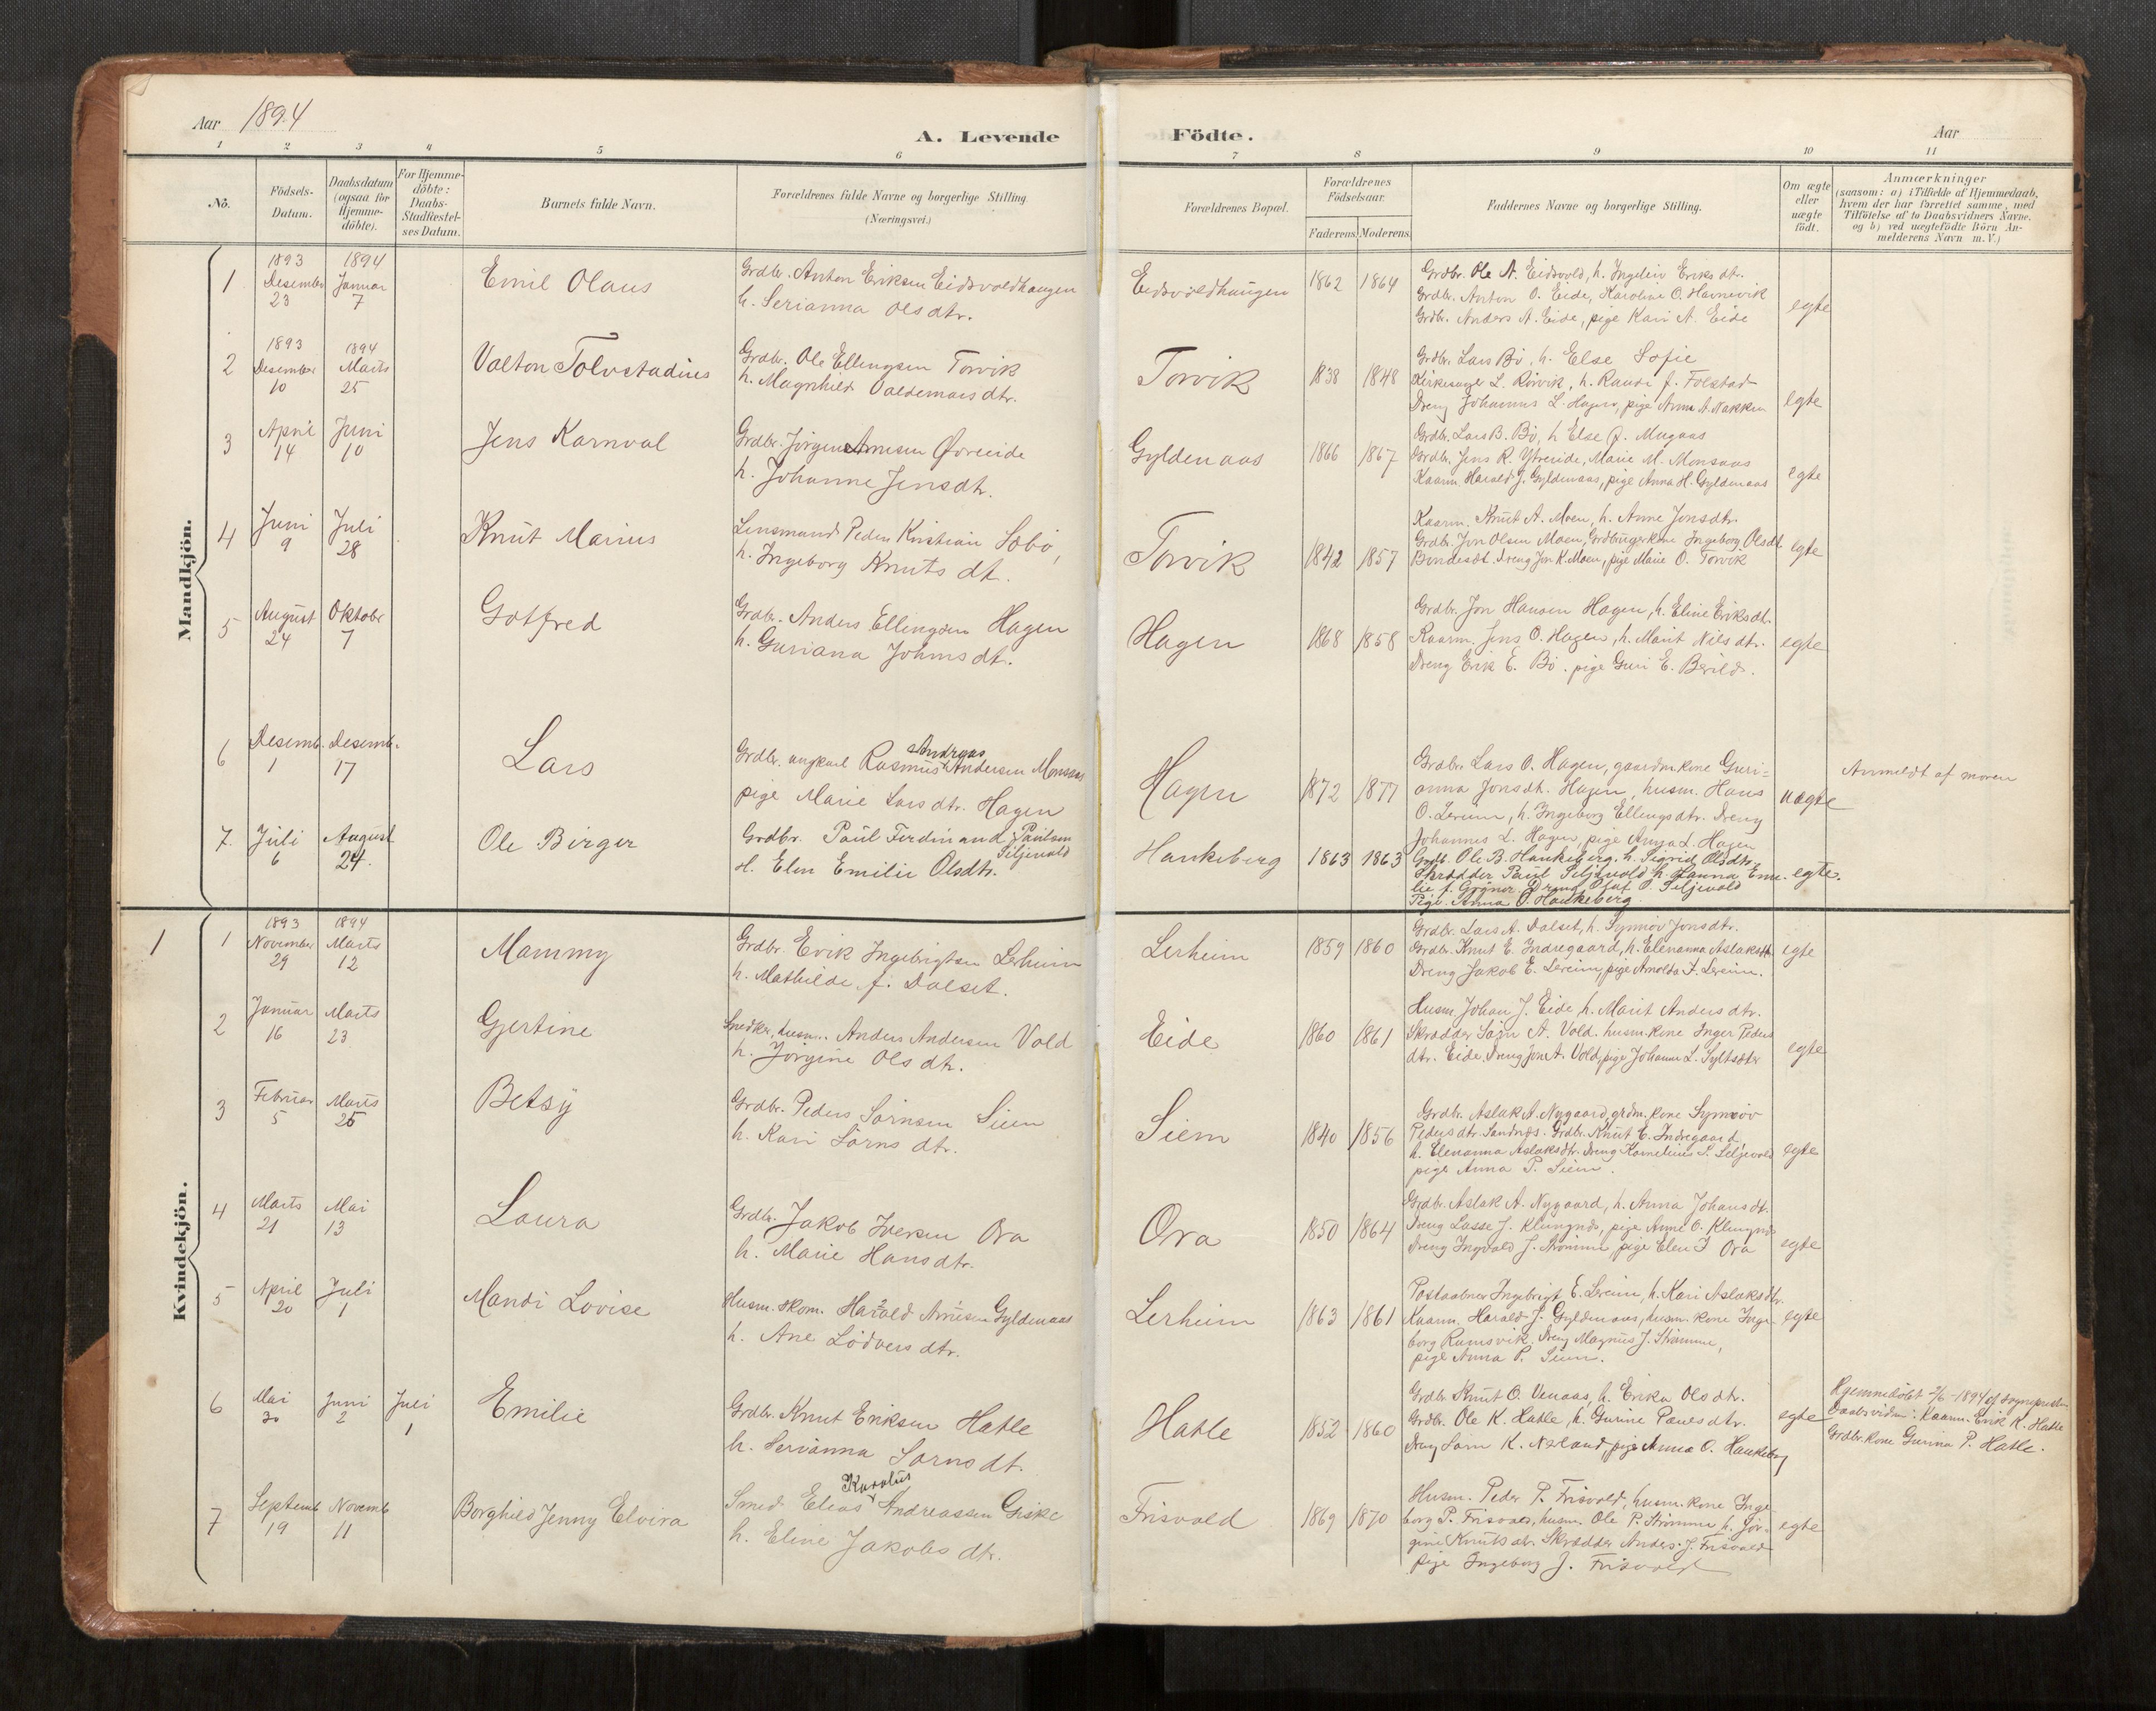 Aar 1894
A. Levende Födte.
Aar
1 2 3 4 5 6 7 8 9 10 11
No.
Födsels-Datum.
Daabsdatum (ogsaa for Hjemme-döbte).
For Hjemme-döbte: Daabs-Stadfæstel-ses Datum.
Barnets fulde Navn.
Forældrenes fulde Navne og borgerlige Stilling
(Næringsvei.)
Forældrenes Bopæl.
Forældrenes Födselsaar.
Faderens. Moderens.
Faddernes Navne og borgerlige Stilling.
Om ægte eller uægte födt.
Anmærkninger
(saasom: a) i Tilfælde af Hjemmedaab, hvem der har forrettet samme, med Tilföielse af to Daabsvidners Navne. og b) ved uægtefödte Börn An-melderens Navn m. V.)
Mandkjön.
1 1893 Desember 23 1894 Januar 7 Emil Olaus
Grdbr. Anton Eriksen Eidsvoldhaugen
h. Serianna Olsdtr.
Eidsvoldhaugen 1862 1864
Grdbr. Ole A. Eidsvold, h. Ingeleiv Eriksdtr.
Grdbr. Anton O. Eide, Karoline O. Havnevik
Grdbr. Anders A. Eide, pige Kari A. Eide
egte
2 1893 Desember 10 1894 Marts 25 Valton Tolvstadius
Grdbr. Ole Ellingsen Torvik
h. Magnhild Valdemarsdtr.
Torvik 1838 1848
Grdbr. Lars Bö, h. Else Sofie
Kirkesanger L. Rörvik, h. Randi f. Folstad
Dreng Johannes L. Hagen, pige Anna A. Nakken
egte
3 April 14 Juni 10 Jens Karnval
Grdbr. Jörgen Arnesen Övreeide
h. Johanne Jensdtr.
Gyldenaas 1866 1867
Grdbr. Lars B. Bö, h Else J. Mugaas
Grdbr. Jens R. Ytreeide, Marie M. Monsaas
Kaarm. Harald J. Gyldenaas, pige Anna H. Gyldenaas
egte
4 Juni 9 Juli 28 Knut Marius
Lensmand Peder Kristian Sæbö,
h. Ingeborg Knutsdt.
Torvik 1842 1857
Kaarm. Knut A. Moen, h. Anne Jonsdtr.
Grdbr. Jon Olsen Moen, Grdbrugerkone Ingeborg Olsdt.
Bondesdt. Dreng Jon K. Moen, pige Marie O. Torvik
egte
5 August 24 Oktober 7 Gotfred
Grdbr. Anders Ellingsen Hagen
h. Guriana Johnsdt.
Hagen 1868 1858
Grdbr. Jon Hansen Hagen, h. Eline Eriksdt.
Kaarm. Jens O. Hagen, h. Marit Nilsdtr.
Dreng Erik E. Bö. pige Guri E. Berild.
egte
6 Desemb. 1 Desemb. 17 Lars
Andreas
Grdbr. ungkarl Rasmus Andersen Monsaas
pige Marie Larsdtr. Hagen
Hagen 1872 1877
Grdbr. Lars O. Hagen, gaardm.kone Guri-
anna Jonsdt. Hagen, husm. Hans
O. Lereim, h. Ingeborg Ellingsdtr. Dreng
Johannes L. Hagen, pige Anna L. Hagen
uægte
Anmeldt af moren
7. Juli 6 August 24. Ole Birger
Grdbr. Paul Ferdinand Paulsen Siljevold
H. Elen Emilie Olsdtr.
Haukeberg 1863 1863
Grdb. Ole B. Haukeberg. h. Sigrid Olsdtr.
Skrædder Paul Siljevold h. Hanna Emi-
lie f. Dreng Olaf P. Siljevold
Pige Anna O. Haukeberg.
egte.
Kvindekjön.
1
1 1893 November 29 1894 Marts 12 Mammy
Grdbr. Erik Ingebrigtsen Lerheim
h. Mathilde f. Dalset.
Lerheim 1859 1860
Grdbr. Lars A. Dalset, h. Synnöv Jonsdtr.
Grdbr. Knut E. Indregaard, h. Elenanna Aslaksdt.
Dreng Jakob E. Lereim, pige Arnolda I. Lereim.
egte
2 Januar 16 Marts 23 Gjertine
Snedker, husm. Anders Andersen Vold
h. Jörgine Olsdtr.
Eide 1860 1861
Husm. Johan J. Eide, h. Marit Andersdtr.
Skrædder Sörn A. Vold. husm.kone Inger Peders
dtr. Eide. Dreng Jon A. Vold, pige Johanne L. Syltsæter
egte
3 Februar 5 Marts 25 Betsÿ
Grdbr. Peder Sörnsen Siem
h. Kari Sörnsdtr.
Siem 1840 1856
Grdbr. Aslak A. Nygaard, grdm.kone Synnöv
Pedersdtr. Sandnes. Grdbr. Knut E. Indregaard,
h. Elenanna Aslaksdtr. Dreng Kornelius S. Siljevold
pige Anna P. Siem.
egte
4 Marts 21 Mai 13 Laura
Grdbr. Jakob Iversen Ora
h. Marie Hansdtr.
Ora 1850 1864
Grdbr. Aslak A. Nygaard, h. Anna Johansdt.
Dreng Lasse J. Klungnes, pige Anne O. Klungnes
Dreng Ingvald J. Strömme, pige Elen I Ora
egte
5 April 20 Juli 1 Mandi Lovise
Husm. skom. Harald Arnesen Gyldenaas
h. Ane Lödversdtr.
Lerheim 1863 1861
Postaabner Ingebrigt E. Lereim, h. Kari Aslaksdtr.
Kaarm. Harald J. Gyldenaas, husm. kone Inge-
borg Ramsvik. Dreng Magnus J. Strömme,
pige Anna P. Siem.
egte
6 Mai 30 Juni 2 Juli 1 Emilie
Grdbr. Knut Eriksen Hatle
h. Serianna Sörnsdt.
Hatle 1852 1860
Grdbr. Knut O. Venaas, h. Erika Olsdtr.
Grdbr. Ole K. Hatle, h. Gurine Paulsdtr.
Dreng Sörn K. Nesland, pige Anna O. Haukeberg
egte
Hjemmedöbt 2/6-1894 af sognepresten
Daabsvidn: Kaarm. Erik K. Hatle
Grdbr.kone Gurina P. Hatle.
7 Septemb 19 Novemb 11 Borghild Jenny Elvira
Karolus
Smed Elias Andreassen Giske
h. Eline Jakobsdtr.
Frisvold 1869 1870
Husm. Peder P. Frisvold, husm.kone Inge
borg P. Frisvold, husm. Ole P. Strömme h. Jör-
gine Knutsdtr. Skrædder Anders J. Frisvold
pige Ingeborg J. Frisvold
egte